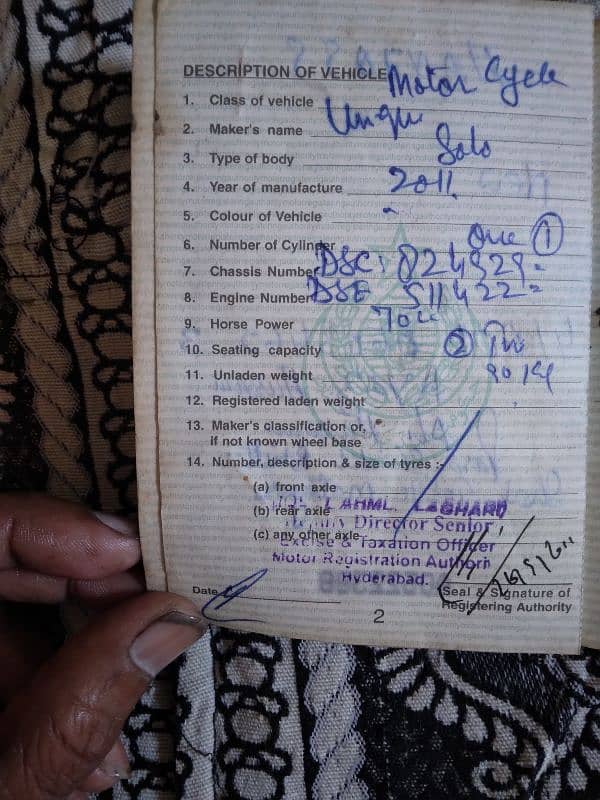 DESCRIPTION OF VEHICLE
1. Class of vehicle Motor Cycle
2. Maker's name Unique
3. Type of body Solo
4. Year of manufacture 2011
5. Colour of Vehicle -
6. Number of Cylinder One 1
7. Chassis Number DSC:
8. Engine Number DSE
9. Horse Power 70cc
10. Seating capacity 2
11. Unladen weight
12. Registered laden weight
13. Maker's classification or,
if not known wheel base
14. Number, description & size of tyres :-
(a) front axle
(b) rear axle
(c) any other axle
Director Senior,
Excise & Taxation Officer
Motor Registration
Hyderabad.
Date
Seal & Signature of
Registering Authority
2